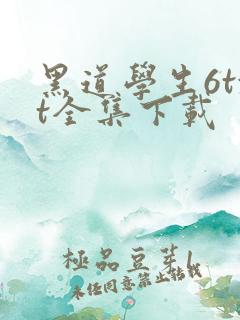 黑道學生6tx
t全集下載
極品豆芽1
未经同意禁止转载